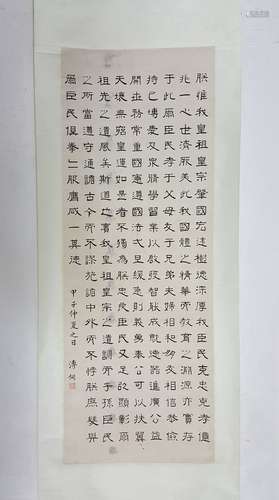 朕惟我皇祖皇宗肇國宏遠樹德深厚我臣民克忠克孝億
兆一心世濟厥美此我國體之精華而教育之淵源亦實存
于此爾臣民孝于父母友于兄弟夫婦相和朋友相信恭儉
持己博愛及眾修學習業以啟發智能成就德器進廣公益
開世務常重國憲遵國法一旦緩急則義勇奉公可以扶翼
天壤無窮皇運如是者不獨為朕忠良臣民又足以顯彰爾
祖先之遺風矣斯道也實我皇祖皇宗之遺訓而子孫臣民
之所當遵守通諸古今而不謬施諸中外而不悖朕庶幾與
爾臣民俱拳二服膺咸一其德
甲子仲夏之日 溥侗